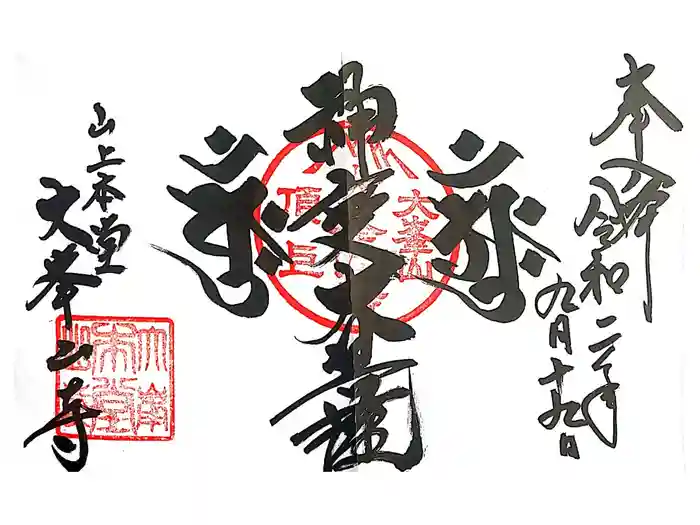 奉入峯
令和二年
九月十九日
神変大菩薩
大峯山
頂上
山上本堂
大峯山寺